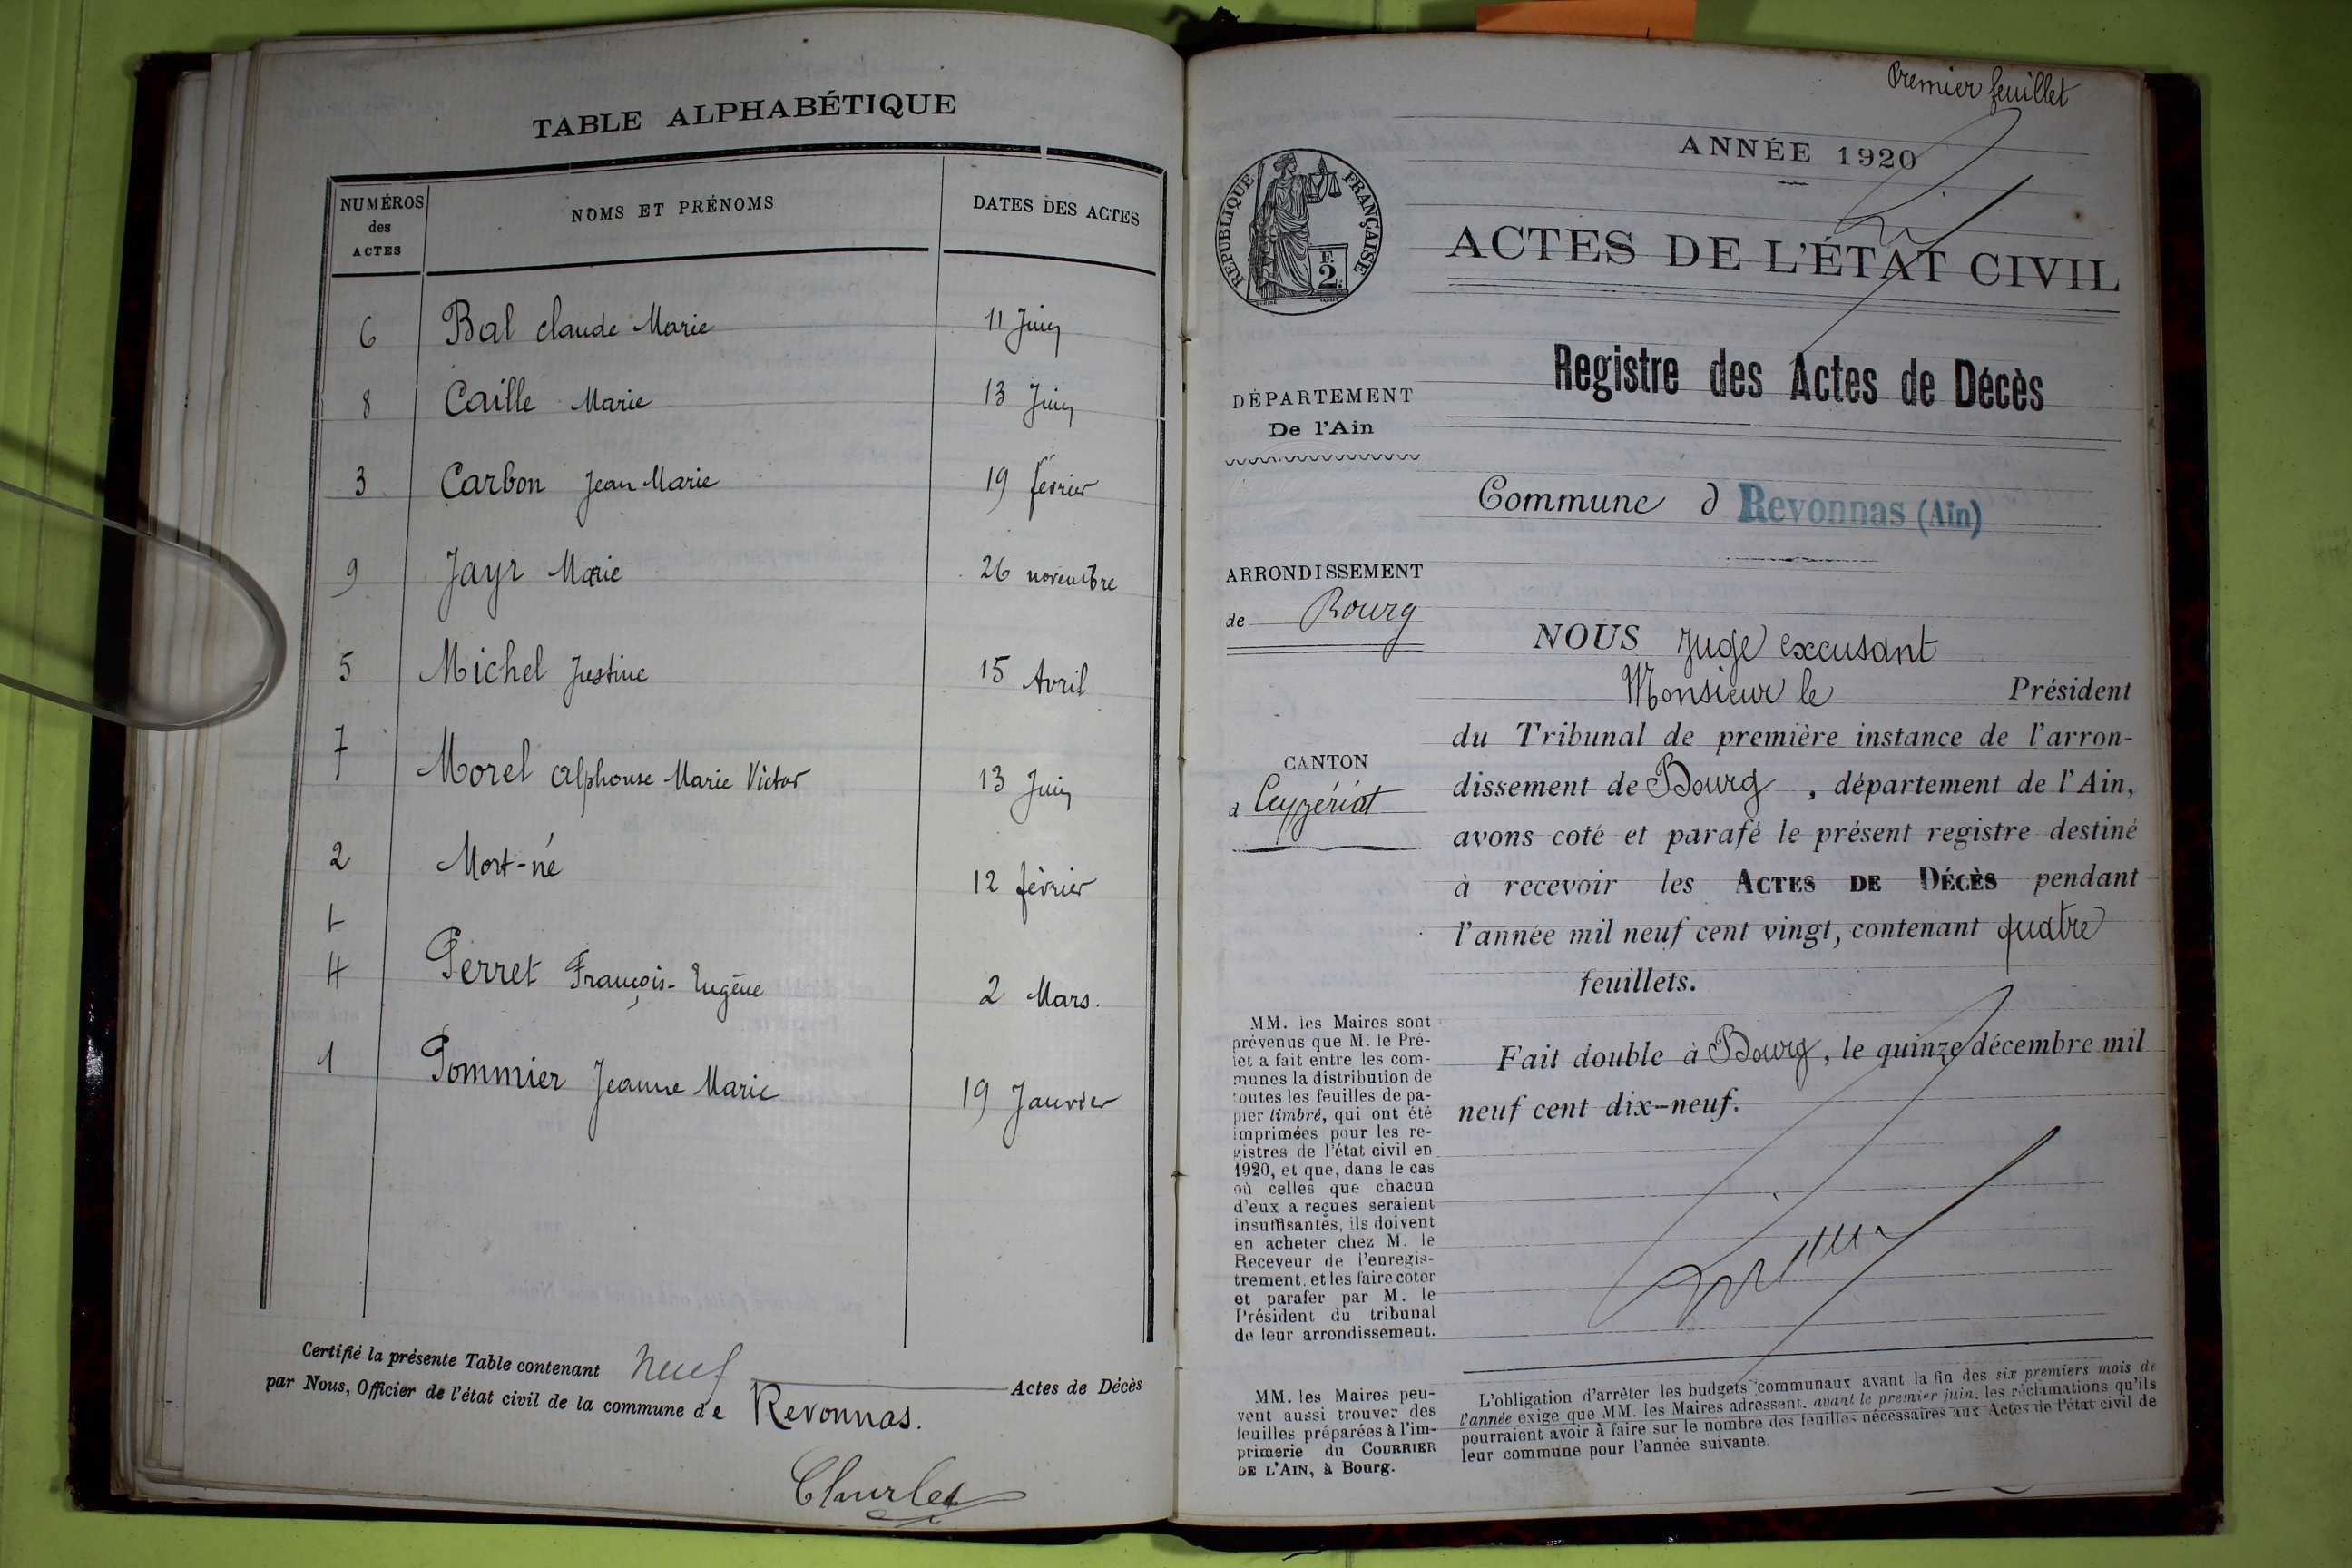 TABLE ALPHABÉTIQUE
NUMÉROS des ACTES NOMS ET PRÉNOMS DATES DES ACTES
6 Bal claude Marie 11 Juin
8 Caille Marie 13 Juin
3 Carbon Jean Marie 19 février
9 Jayr Marie 26 novembre
5 Michel Justine 15 Avril
7 Morel Alphonse Marie Victor 13 Juin
2 Mort-né 12 février
4 Perret François-Eugène 2 Mars.
1 Pommier Jeanne Marie 19 Janvier
Certifié la présente Table contenant neuf Actes de Décès
par Nous, Officier de l'état civil de la commune de Revonnas.
Premier feuillet
ANNÉE 1920
RÉPUBLIQUE FRANÇAISE
F.
2.
ACTES DE L'ÉTAT CIVIL
Registre des Actes de Décès
DÉPARTEMENT
De l'Ain
Commune d Revonnas (Ain)
ARRONDISSEMENT
de Bourg
CANTON
d Ceyzériat
NOUS Juge excusant
Monsieur le Président
du Tribunal de première instance de l'arron-
dissement de Bourg, département de l'Ain,
avons coté et parafé le présent registre destiné
à recevoir les ACTES DE DÉCÈS pendant
l'année mil neuf cent vingt, contenant quatre
feuillets.
Fait double à Bourg, le quinze décembre mil
neuf cent dix-neuf.
MM. les Maires sont
prévenus que M. le Pré-
fet a fait entre les com-
munes la distribution de
toutes les feuilles de pa-
pier timbré, qui ont été
imprimées pour les re-
gistres de l'état civil en
1920, et que, dans le cas
où celles que chacun
d'eux a reçues seraient
insuffisantes, ils doivent
en acheter chez M. le
Receveur de l'enregis-
trement, et les faire coter
et parafer par M. le
Président du tribunal
de leur arrondissement.
MM. les Maires peu-
vent aussi trouver des
feuilles préparées à l'im-
primerie du COURRIER
DE L'AIN, à Bourg.
L'obligation d'arrêter les budgets communaux avant la fin des six premiers mois de
l'année exige que MM. les Maires adressent, avant le premier juin, les réclamations qu'ils
pourraient avoir à faire sur le nombre des feuilles nécessaires aux Actes de l'état civil de
leur commune pour l'année suivante.